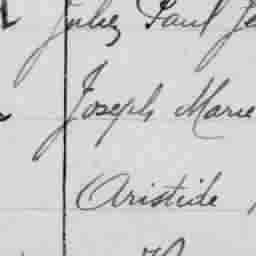 Jules Paul
Joseph Marie
Aristide